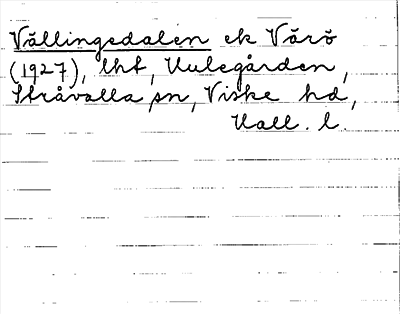 Vällingedalen ek Värö
(1927), lht, Uulegården,
Stråvalla sn, Viske hd,
Hall. l.